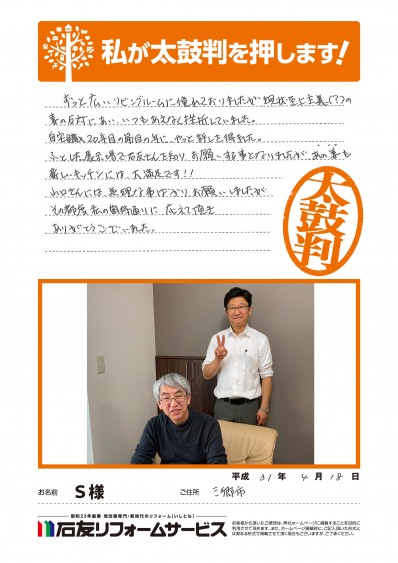 私が太鼓判を押します!
ずっと広いリビングルームに憧れておりましたが現状至上主義(?)の
妻の反対にあい、いつもあえなく挫折していました。
自宅購入20年目の節目の年に、やっと許しを得ました。
ふとした展示場で石友さんを知り、お願いする事となりましたが、あの妻も
新しいキッチンには、大満足です!!
山口さんには、無理な事ばかりお願いしましたが
その都度私の箇所通りに応えて頂き
ありがとうございました。
太鼓判
平成 31 年 4 月 18 日
お名前 S様 ご住所 三郷市
昭和23年創業 増改築専門・新時代のリフォーム[いしとも]
石友リフォームサービス
お客様から頂いたご感想は、弊社ホームページに掲載することを目的に
利用させて頂きます。また、ホームページ掲載時に、ご記入頂いた様式と
は異なる形式で掲載させて頂く場合もございますが、ご了承ください。